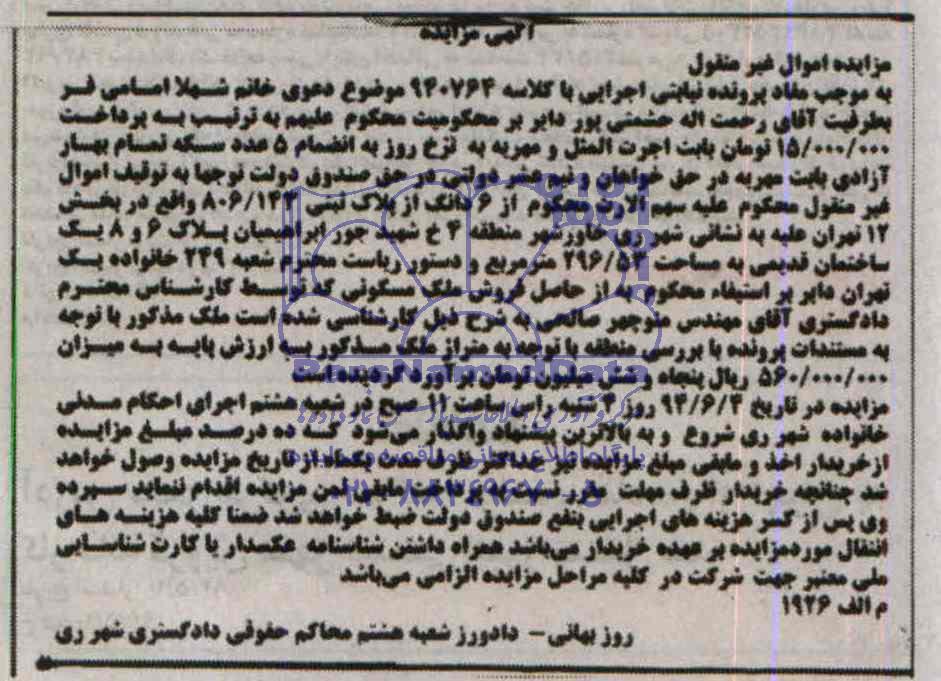 آگهی مزایده
مزایده اموال غیر منقول
به موجب مفاد پرونده نیابتی اجرایی با کلاسه ۹۴۰۷۶۴ موضوع دعوی خانم شهلا امامی فر
بطرفیت آقای رحمت اله حشمتی پور دایر بر محکومیت محکوم علیهم به ترتیب به پرداخت
۱۵/۰۰۰/۰۰۰ تومان بابت اجرت المثل و مهریه به نرخ روز به انضمام ۵ عدد سکه تمام بهار
آزادی بابت مهریه در حق خواهان و نیم عشر دولتی در حق صندوق دولت توجها به توقیف اموال
غیر منقول محکوم علیه سهم الارث محکوم از ۶ دانگ از پلاک ثبتی ۸۰۶/۱۴۳ واقع در بخش
۱۲ تهران علیه به نشانی شهر ری خاورشهر منطقه ۴ خ شهید جور ابراهیمیان پلاک ۶ و ۸ یک
ساختمان قدیمی به مساحت ۲۹۶/۵۳ مترمربع و دستور ریاست محترم شعبه ۲۴۹ خانواده یک
تهران دایر بر استیفاء محکوم به از حاصل فروش ملک مسکونی که توسط کارشناس محترم
دادگستری آقای مهندس منوچهر صالحی به شرح ذیل کارشناسی شده است ملک مذکور با توجه
به مستندات پرونده با بررسی منطقه با توجه به متراژ ملک مذکور به ارزش پایه به میزان
۵۶۰/۰۰۰/۰۰۰ ریال پنجاه و شش میلیون تومان برآورد گردیده است
مزایده در تاریخ ۹۴/۶/۴ روز ۴ شنبه راس ساعت ۱۱ صبح در شعبه هشتم اجرای احکام مدنی
خانواده شهر ری شروع و به بالاترین پیشنهاد واگذار می‌شود که ده درصد مبلغ مزایده
ازخریدار اخذ و مابقی مبلغ مزایده نیز حداکثر ظرف مدت یکماه از تاریخ مزایده وصول خواهد
شد چنانچه خریدار ظرف مهلت مقرر نسبت به پرداخت مابقی ثمن مزایده اقدام ننماید سپرده
وی پس از کسر هزینه های اجرایی بنفع صندوق دولت ضبط خواهد شد ضمنا کلیه هزینه های
انتقال موردمزایده بر عهده خریدار می‌باشد همراه داشتن شناسنامه عکسدار یا کارت شناسایی
ملی معتبر جهت شرکت در کلیه مراحل مزایده الزامی می‌باشد
م الف ۱۹۲۶
روز بهانی- دادورز شعبه هشتم محاکم حقوقی دادگستری شهر ری
ParsNamadData
پایگاه اطلاع رسانی مناقصه و مزایده